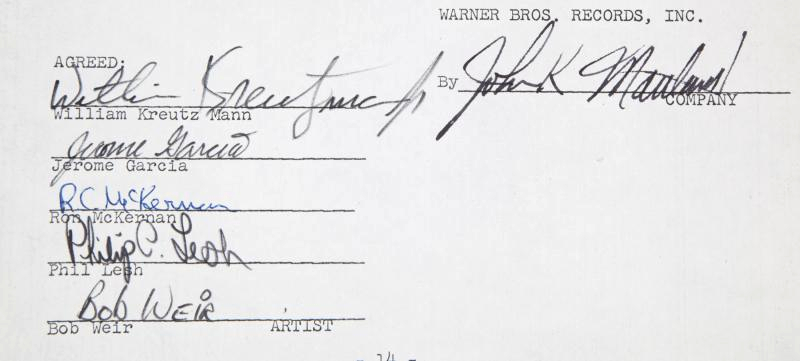 WARNER BROS. RECORDS, INC.
AGREED:
William Kreutzmann Jr
William Kreutz Mann
By John K Maitland
COMPANY
Jerome Garcia
Jerome Garcia
R.C. McKernan
Ron McKernan
Philip C. Lesh
Phil Lesh
Bob Weir
Bob Weir ARTIST
- 14 -